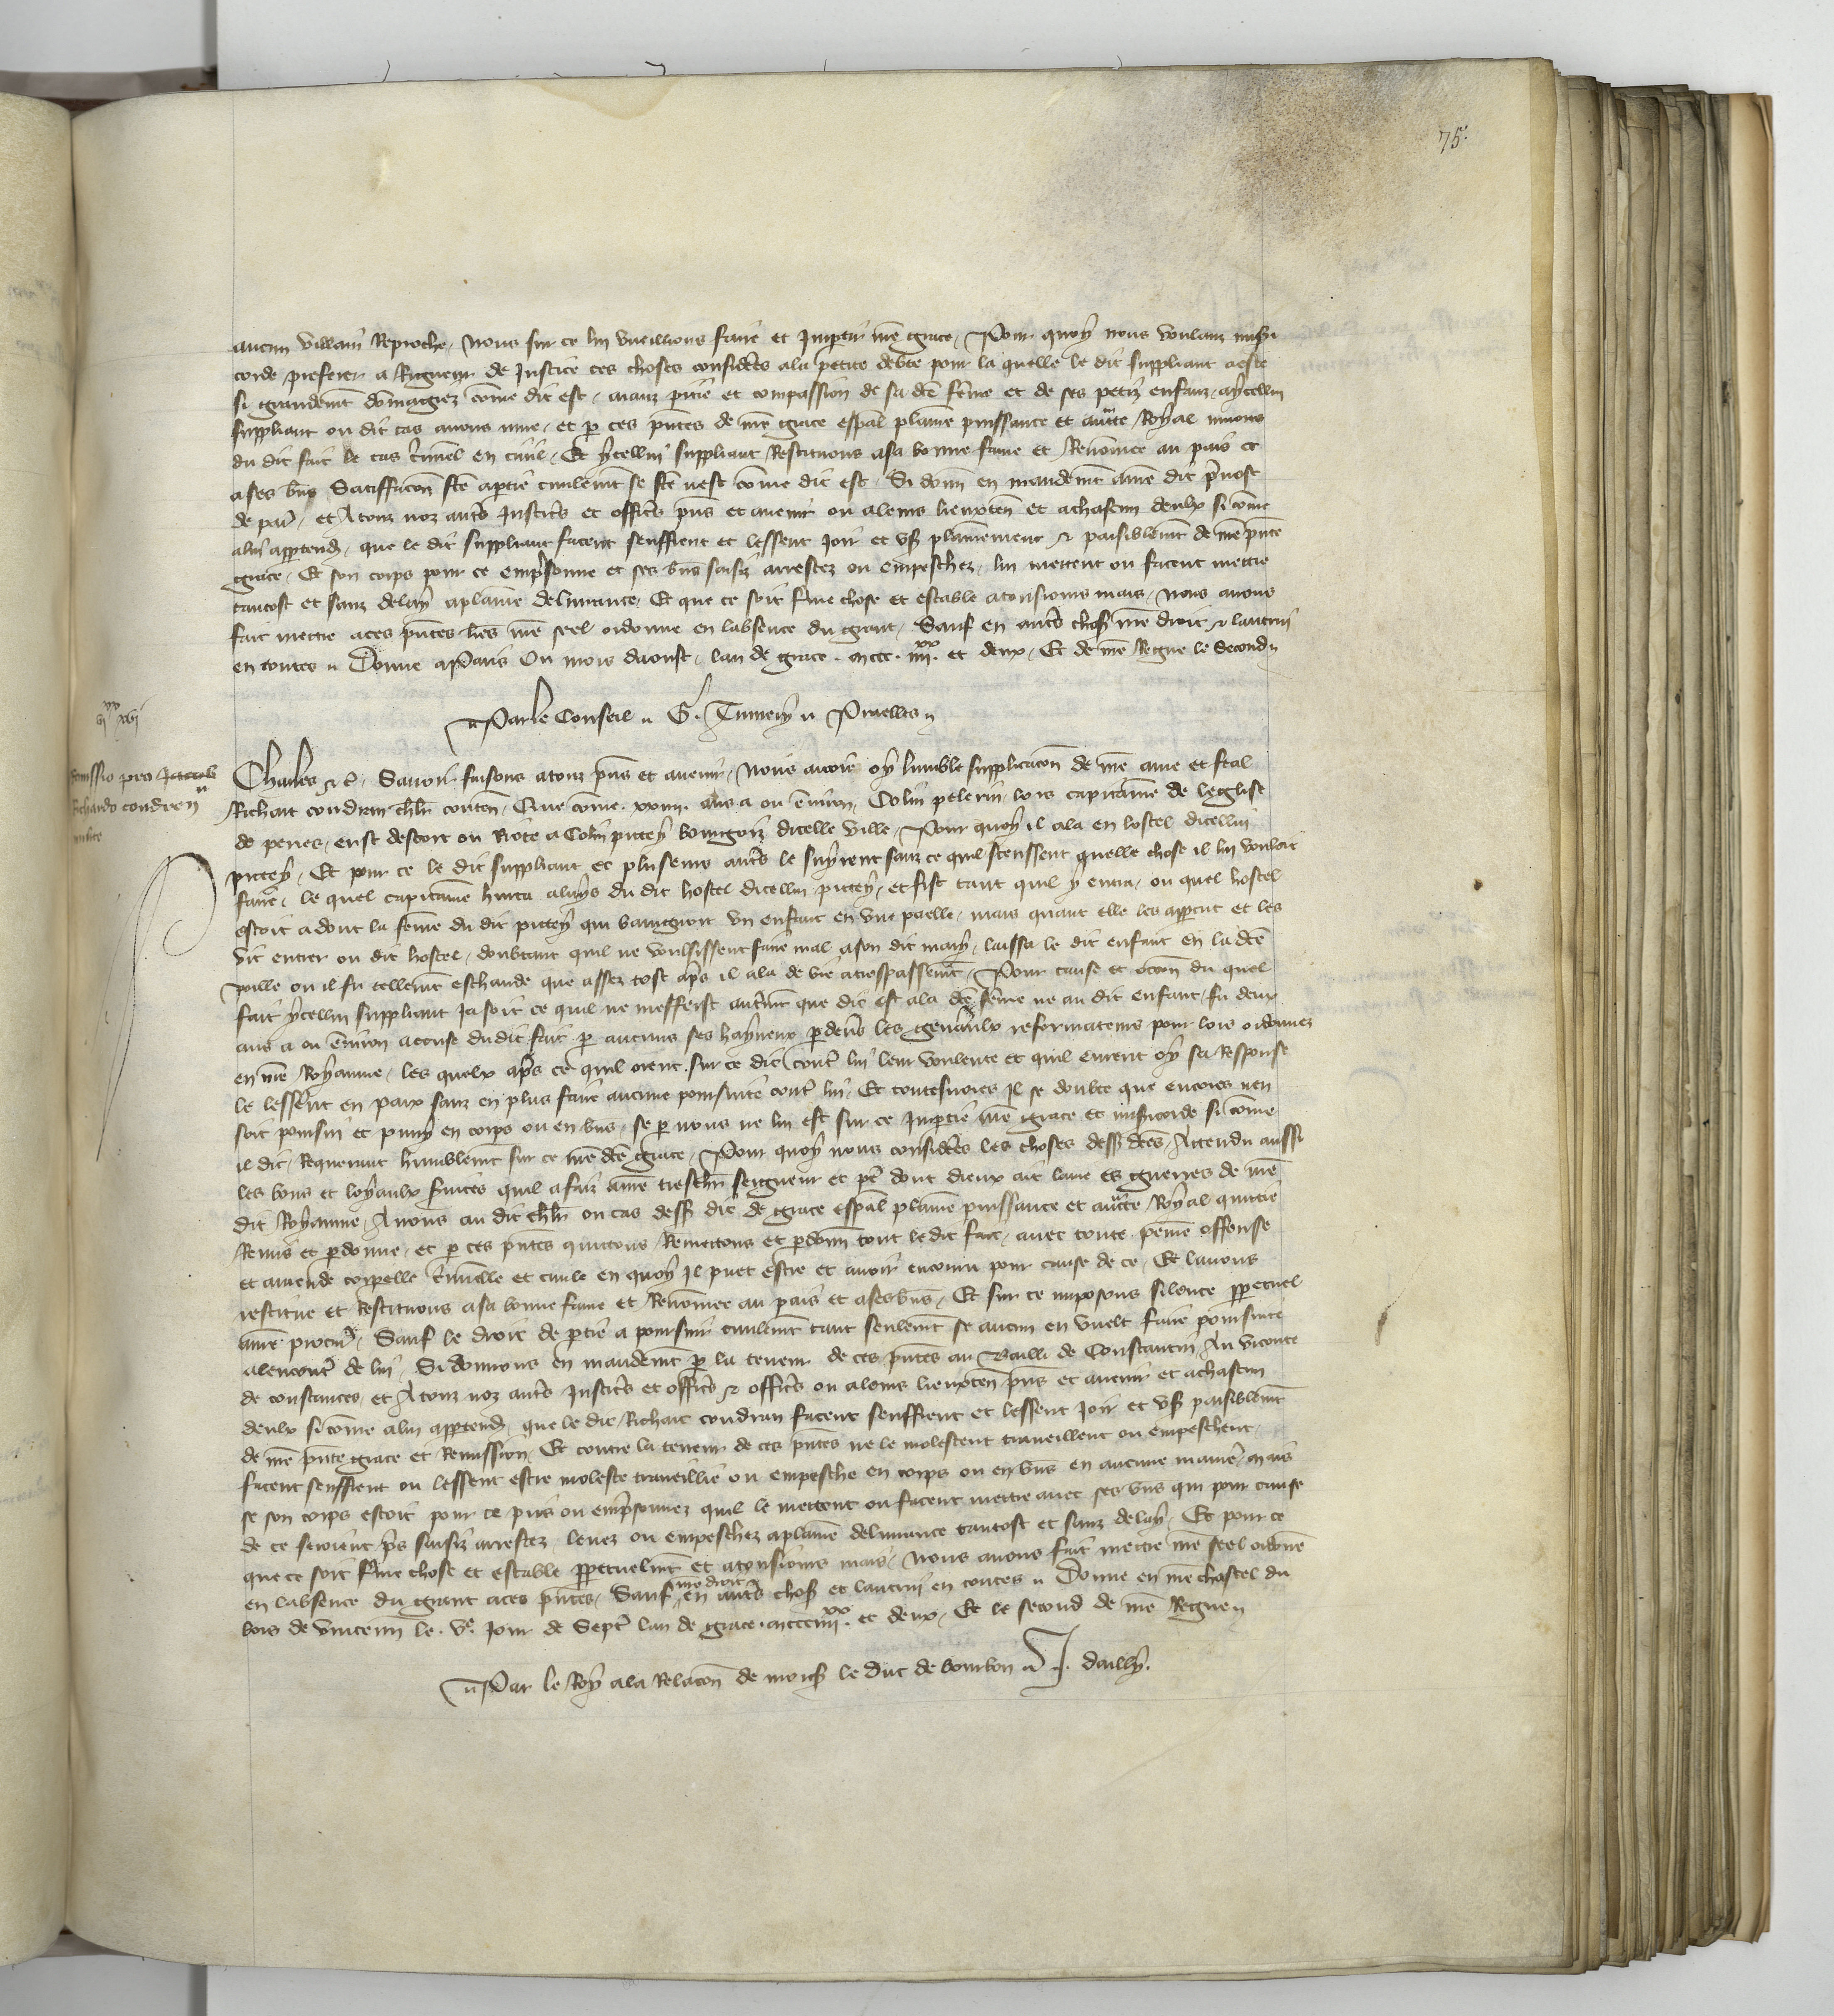 75.
aucun villain Reproche, nous sur ce lui vueillions faire et Impartir nre grace, Pour quoy nous voulans misi
corde preferer a Rigueur de Justice ces choses considees ala petite debte pour la quelle le dit suppliant a este
si grandemt dommagez comme dit est, aians pitie et compassion de sa dce feme et de ses petiz enfanz, aycellui
suppliant ou dit cas auons mue, et p ces pntes de nre grace espal plaine puissance et aucte Royal muons
du dit fait le cas criminel en ciuil, Et ycellui suppliant Restituons a sa bonne fame et Renomee au pais et
a ses bns Satiffacon fce aptie ciuilemt se fce nest comme dit est, Si donn en mandemt a nre dit preuost
de par, et A touz noz autres Justic et offic pns et auenir ou aleurs lieuxten et achascun deulx si comme
alui apptend, que le dit suppliant facent seuffrent et lessent Joir et vs plainement et paisiblemt de nre pnte
grace, Et son corps pour ce emprisonne et ses bns saisiz arrestez ou empeschez, lui mettent ou facent mettre
tantost et sanz delay aplaine deliurance, Et que ce soit ferme chose et estable atousiours mais, nous auons
fait mettre aces pntes lres nre seel ordonne en labsence du grant, Sauf en autres chos nre droit et lautrui
en toutes Donne a Paris Ou mois daoust, lan de grace mccc iiii xx et deux, Et de nre Regne le Second
Par le Conseil G. Tumery Pruelles
vi xx xvi
Remissio pro Jacob
Richardo condren
milite
Charles et c, Sauoir faisons atouz pns et auenir, Nous auoir oy lumble supplicacon de nre ame et feal
Richart condren chlr conten, Que comme xxiiii ans a ou enuiron, Colin pelerin lors capitaine de leglise
de peries, eust descort ou Riote a Colin pittey bourgois dicelle ville, Pour quoy il ala en lostel dicellui
pittey, Et pour ce le dit suppliant et plusieurs autres le suyrent sanz ce quil sceussent quelle chose il lui vouloit
faire, le quel capitaine hurta aluys du dit hostel dicellui pittey, et fist tant quil y entra, ou quel hostel
estoit adont la feme du dit pittey qui baingnoit vn enfant en vne paelle, mais quant elle les appcut et les
vit entrer ou dit hostel, doubtant quil ne voulsissent faire mal a son dit mary, laissa le dit enfant en la dce
paille ou il fu tellemt eschaude que assez tost apres il ala de vie a trespassemt, Pour cause et occon du quel
fait ycellui suppliant Ja soit ce quil ne meffeist autrement que dit est ala dce feme ne au dit enfant, fu deux
ans a ou enuiron acuse du dit fait p aucuns ses hayneux p deuers les generaulx reformateurs pour lors ordonnez
en nre Royaume, les quelx apres ce quil orent sur ce dit contre lui leur voulente et quil eurent oy sa Response
le lesserent en paix sanz en plus faire aucune poursuite contre lui, Et toutesuoies Il se doubte que encores nen
soit poursui et puny en corps ou en bns, se p nous ne lui est sur ce Impartie nre grace et misericorde si comme
il dit, Requerant humblemt sur ce nre dce grace, Pour quoy nous considees les choses dess dces, Attendu aussi
les bons et loyaulx seruices quil a faiz a nre treschr seigneur et pere dont dieux ait lame es guerres de nre
dit Royaume, Auons au dit chlr ou cas dess dit de grace espal plaine puissance et aucte Royal quictie
Remis et pdonne, et p ces pntes quictons Remettons et pdonn tout le dit fait, auec toute peine offense
et amende corpelle criminelle et ciuile en quoy Il puet estre et auoir encouru pour cause de ce, Et lauons
restitue et Restituons a sa bonne fame et Renommee au pais et a ses bns, Et sur ce imposons silence ppetuel
a nre procur, Sauf le droit de ptie a poursuir ciuilemt tant seulemt se aucun en vuelt faire poursuite
alencontre de lui, Si donnons en mandemt p la teneur de ces pntes au Bailli de Constantin Au viconte
de constances et A touz noz autres Justic et offic et offic ou aleurs lieuxten pns et auenir et achascun
deulx si comme alui apptend, que le dit Richart condran facent seuffrent et lessent Joir et vs paisiblemt
de nre pnte grace et Remission, Et contre la teneur de ces pntes ne le molestent traueillent ou empeschent
facent seuffrent ou lessent estre moleste traueillie ou empesche en corps ou en bns en aucune maniere, mais
se son corps estoit pour ce pris ou emprisonnez quil le mettent ou facent mettre auec ses bns qui pour cause
de ce seroient pris saisiz arrestez leuez ou empeschez aplaine deliurance tantost et sanz delay, Et pour ce
que ce soit ferme chose et estable ppetuelmt et atousiours mais, Nous auons fait mettre nre seel ordonne
en labsence du grant aces pntes, Sauf nre droit en autres chos et lautrui en toutes Donne en nre chastel du
bois de vincenn le ve Jour de Septr lan de grace mccciiii xx et deux, Et le second de nre Regne
Par le Roy ala Relacon de mons le duc de bourbon J. dailly.